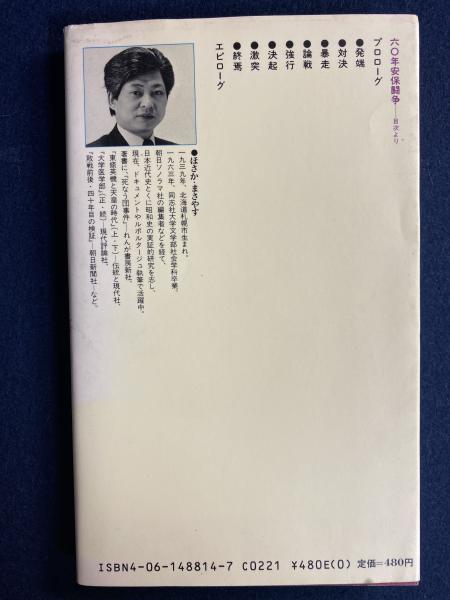 六〇年安保闘争——目次より
プロローグ
●発端
●対決
●暴走
●論戦
●強行
●決起
●激突
●終焉
エピローグ
●ほさか・まさやす
一九三九年、北海道札幌市生まれ。
一九六三年、同志社大学文学部社会学科卒業。
朝日ソノラマ社の編集者などを経て、
日本近代史とくに昭和史の実証的研究を志し、
現在、ドキュメントやルポルタージュ執筆で活躍中。
著書に、『死なう団事件』—れんが書房新社、
『東條英機と天皇の時代』(上・下)—伝統と現代社、
『大学医学部』(正・続)—現代評論社、
『敗戦前後・四十年目の検証』—朝日新聞社—など。
ISBN4-06-148814-7 C0221 ¥480E(0) 定価=480円